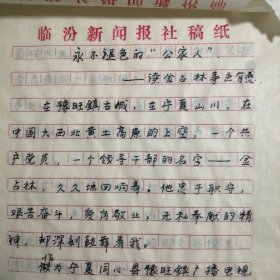 临汾新闻报社稿纸
永不褪色的“公家人”
——读金占林事迹有感
在豫旺镇古城，在宁夏山川，在
中国大西北黄土高原的上空，一个共
产党员，一个领导干部的名字——金
占林，久久地回响着，他忠于职守，
艰苦奋斗，爱岗敬业，无私奉献的精
神，却深刻鼓舞着我。
作为宁夏同心县豫旺镇广播电视